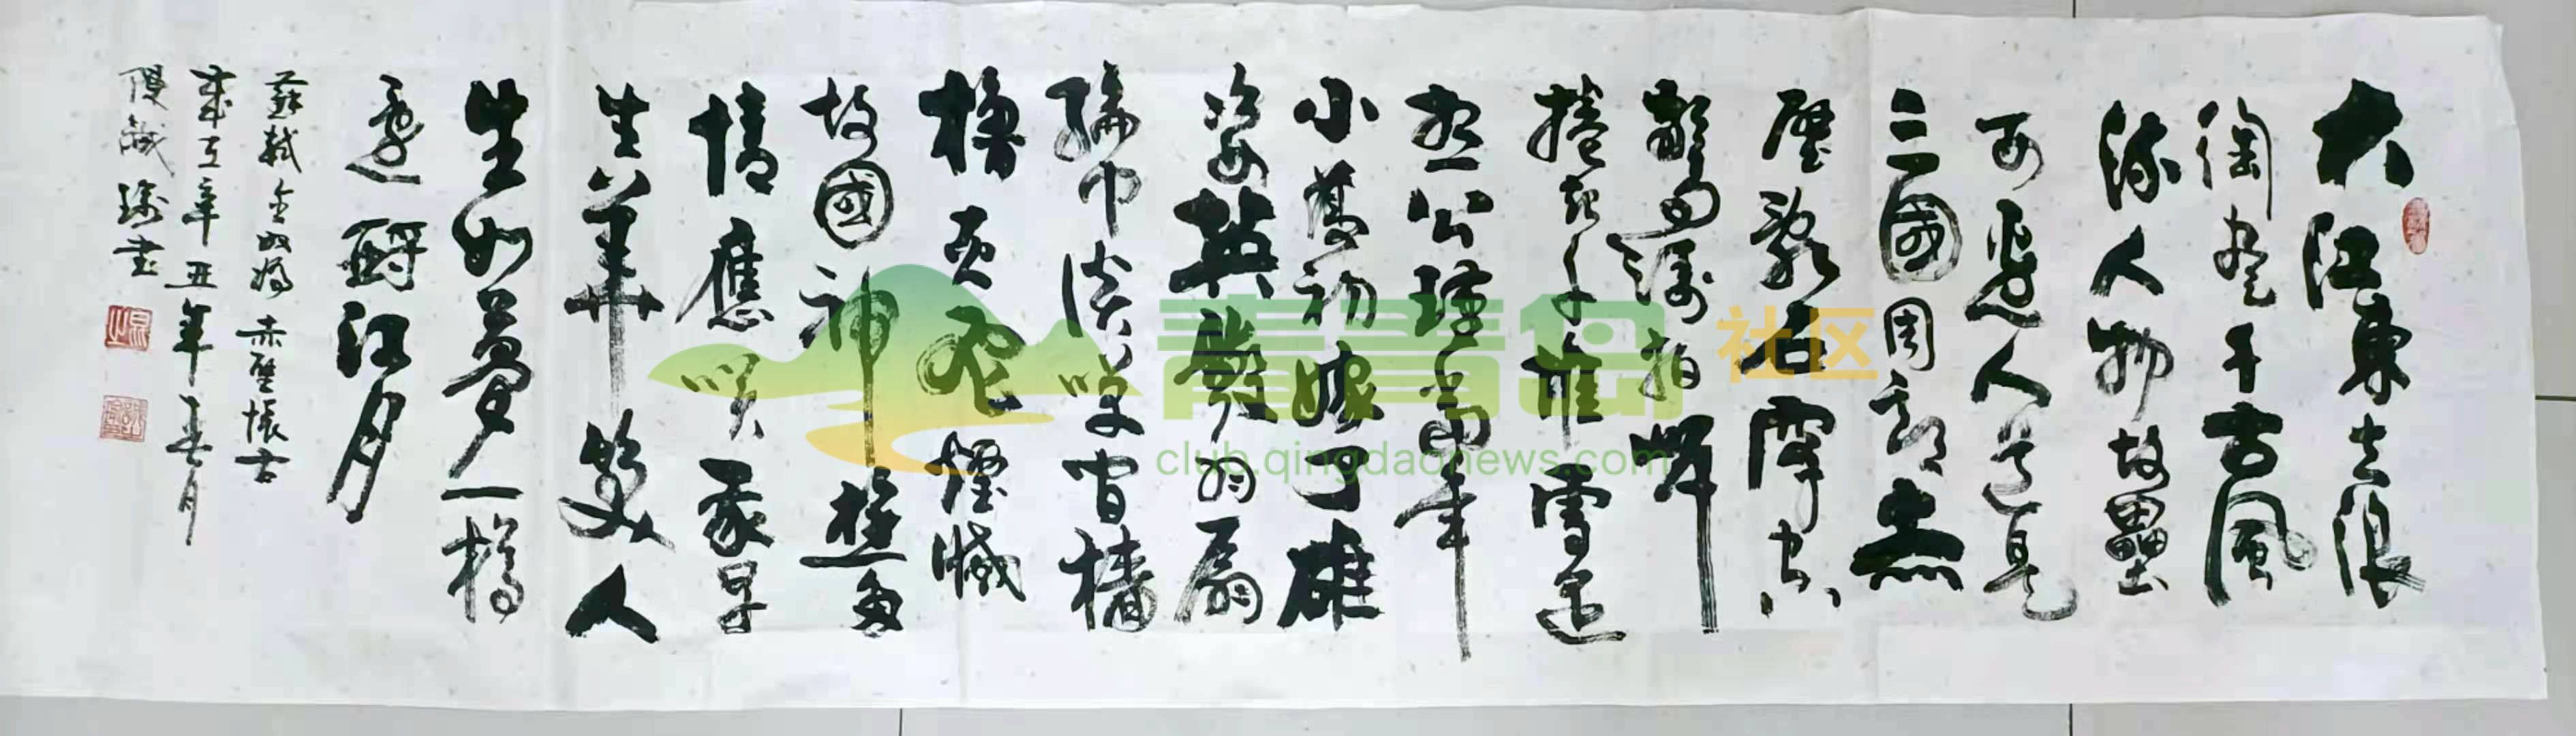 大江東去浪
淘盡千古風
流人物故壘
西邊人道是
三國周郎赤
壁亂石穿空
驚濤拍岸
捲起千堆雪遙
想公瑾當年
小喬初嫁了雄
姿英發羽扇
綸巾談笑間檣
櫓灰飛煙滅
故國神遊多
情應笑我早
生華髮人
生如夢一樽
還酹江月
蘇軾念奴嬌赤壁懷古
歲在辛丑年春月
書
青青岛社区
club.qingdaonews.com